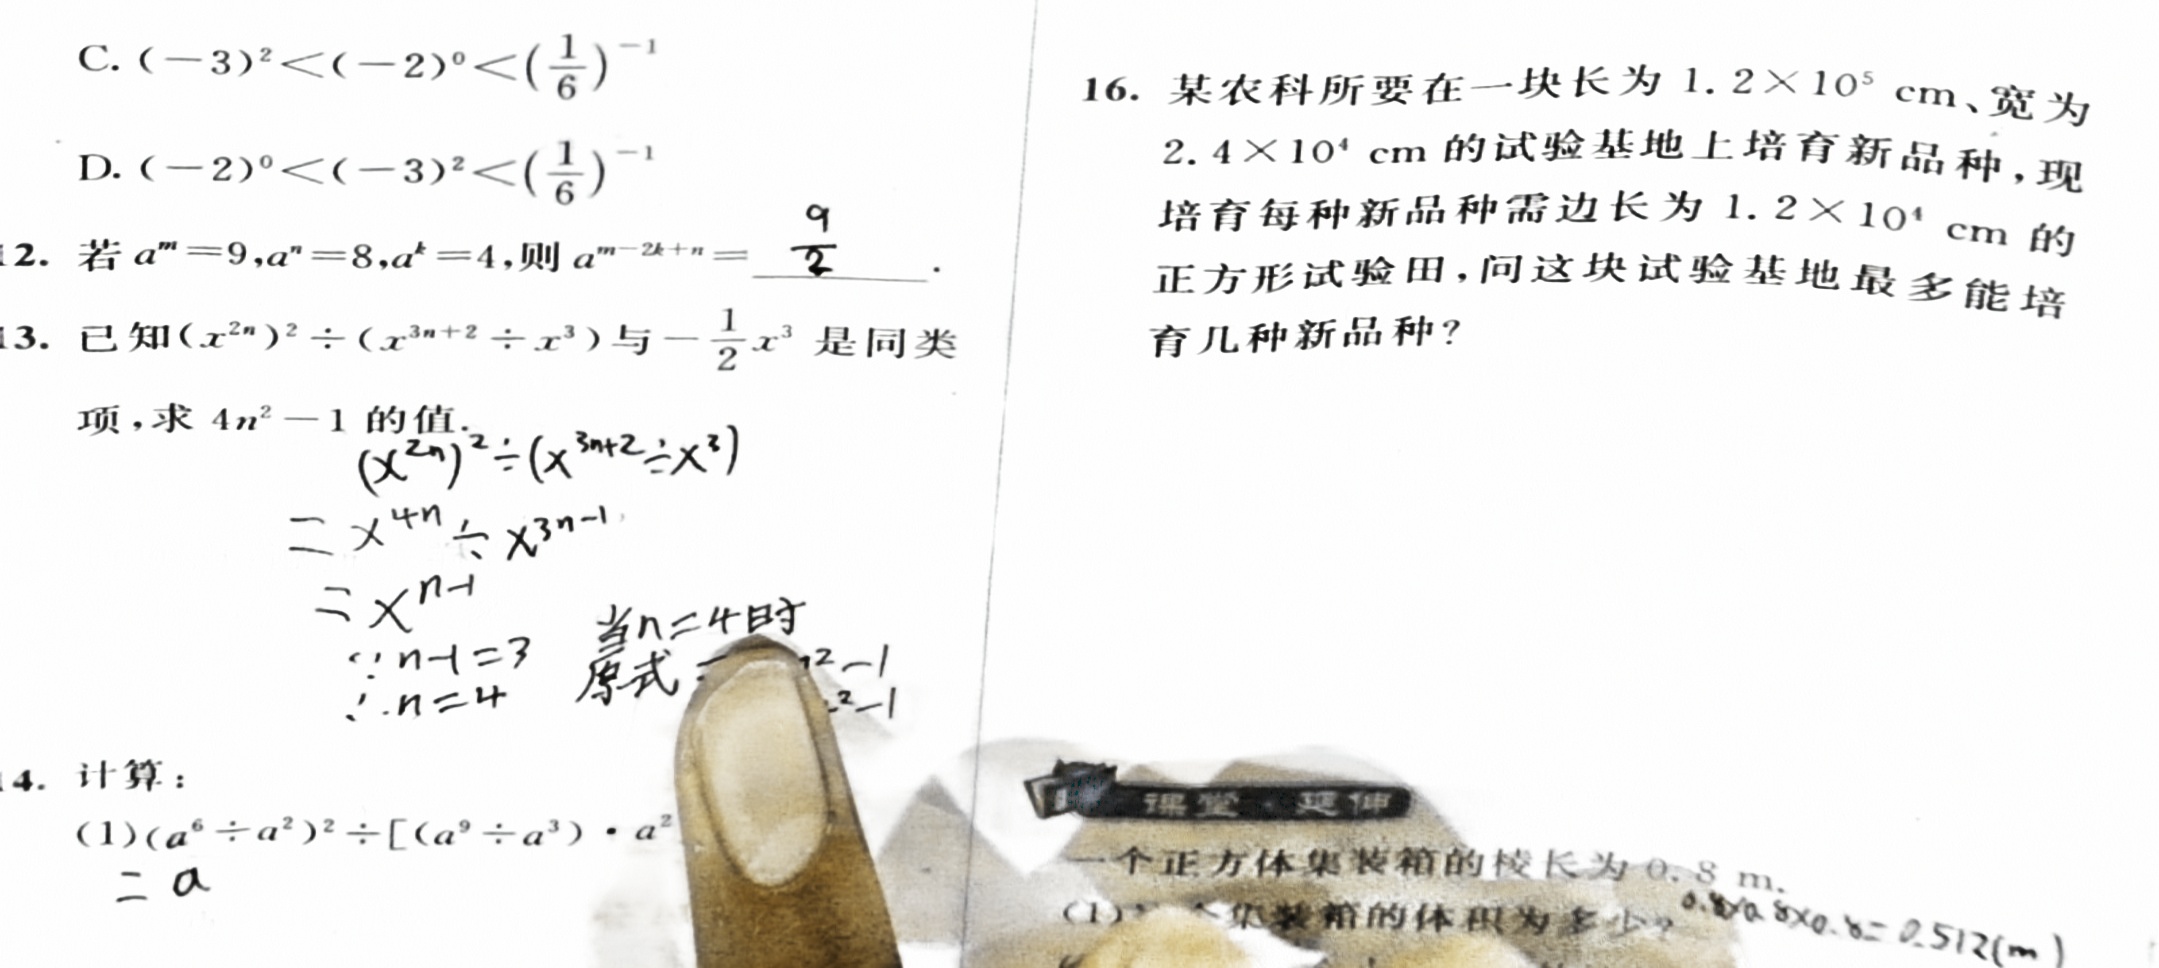 C. (－3)²＜(－2)⁰＜(1/6)⁻¹
D. (－2)⁰＜(－3)²＜(1/6)⁻¹
12. 若 aᵐ＝9,aⁿ＝8,aᵏ＝4,则 a^(m－2k＋n)＝ 9/2 .
13. 已知(x²ⁿ)²÷(x³ⁿ⁺²÷x³)与－1/2x³ 是同类
项,求 4n²－1 的值.
(x²ⁿ)²÷(x³ⁿ⁺²÷x³)
＝x⁴ⁿ÷x³ⁿ⁻¹
＝xⁿ⁻¹
∵n-1=3
∴n=4
当n=4时
原式=
²-1
²-1
14. 计算：
(1)(a⁶÷a²)²÷[(a⁹÷a³)·a²
＝a
16. 某农科所要在一块长为 1.2×10⁵ cm、宽为
2.4×10⁴ cm 的试验基地上培育新品种,现
培育每种新品种需边长为 1.2×10⁴ cm 的
正方形试验田,问这块试验基地最多能培
育几种新品种?
课堂·延伸
一个正方体集装箱的棱长为 0.8 m.
(1) 个集装箱的体积为多少? 0.8×0.8×0.8=0.512(m)